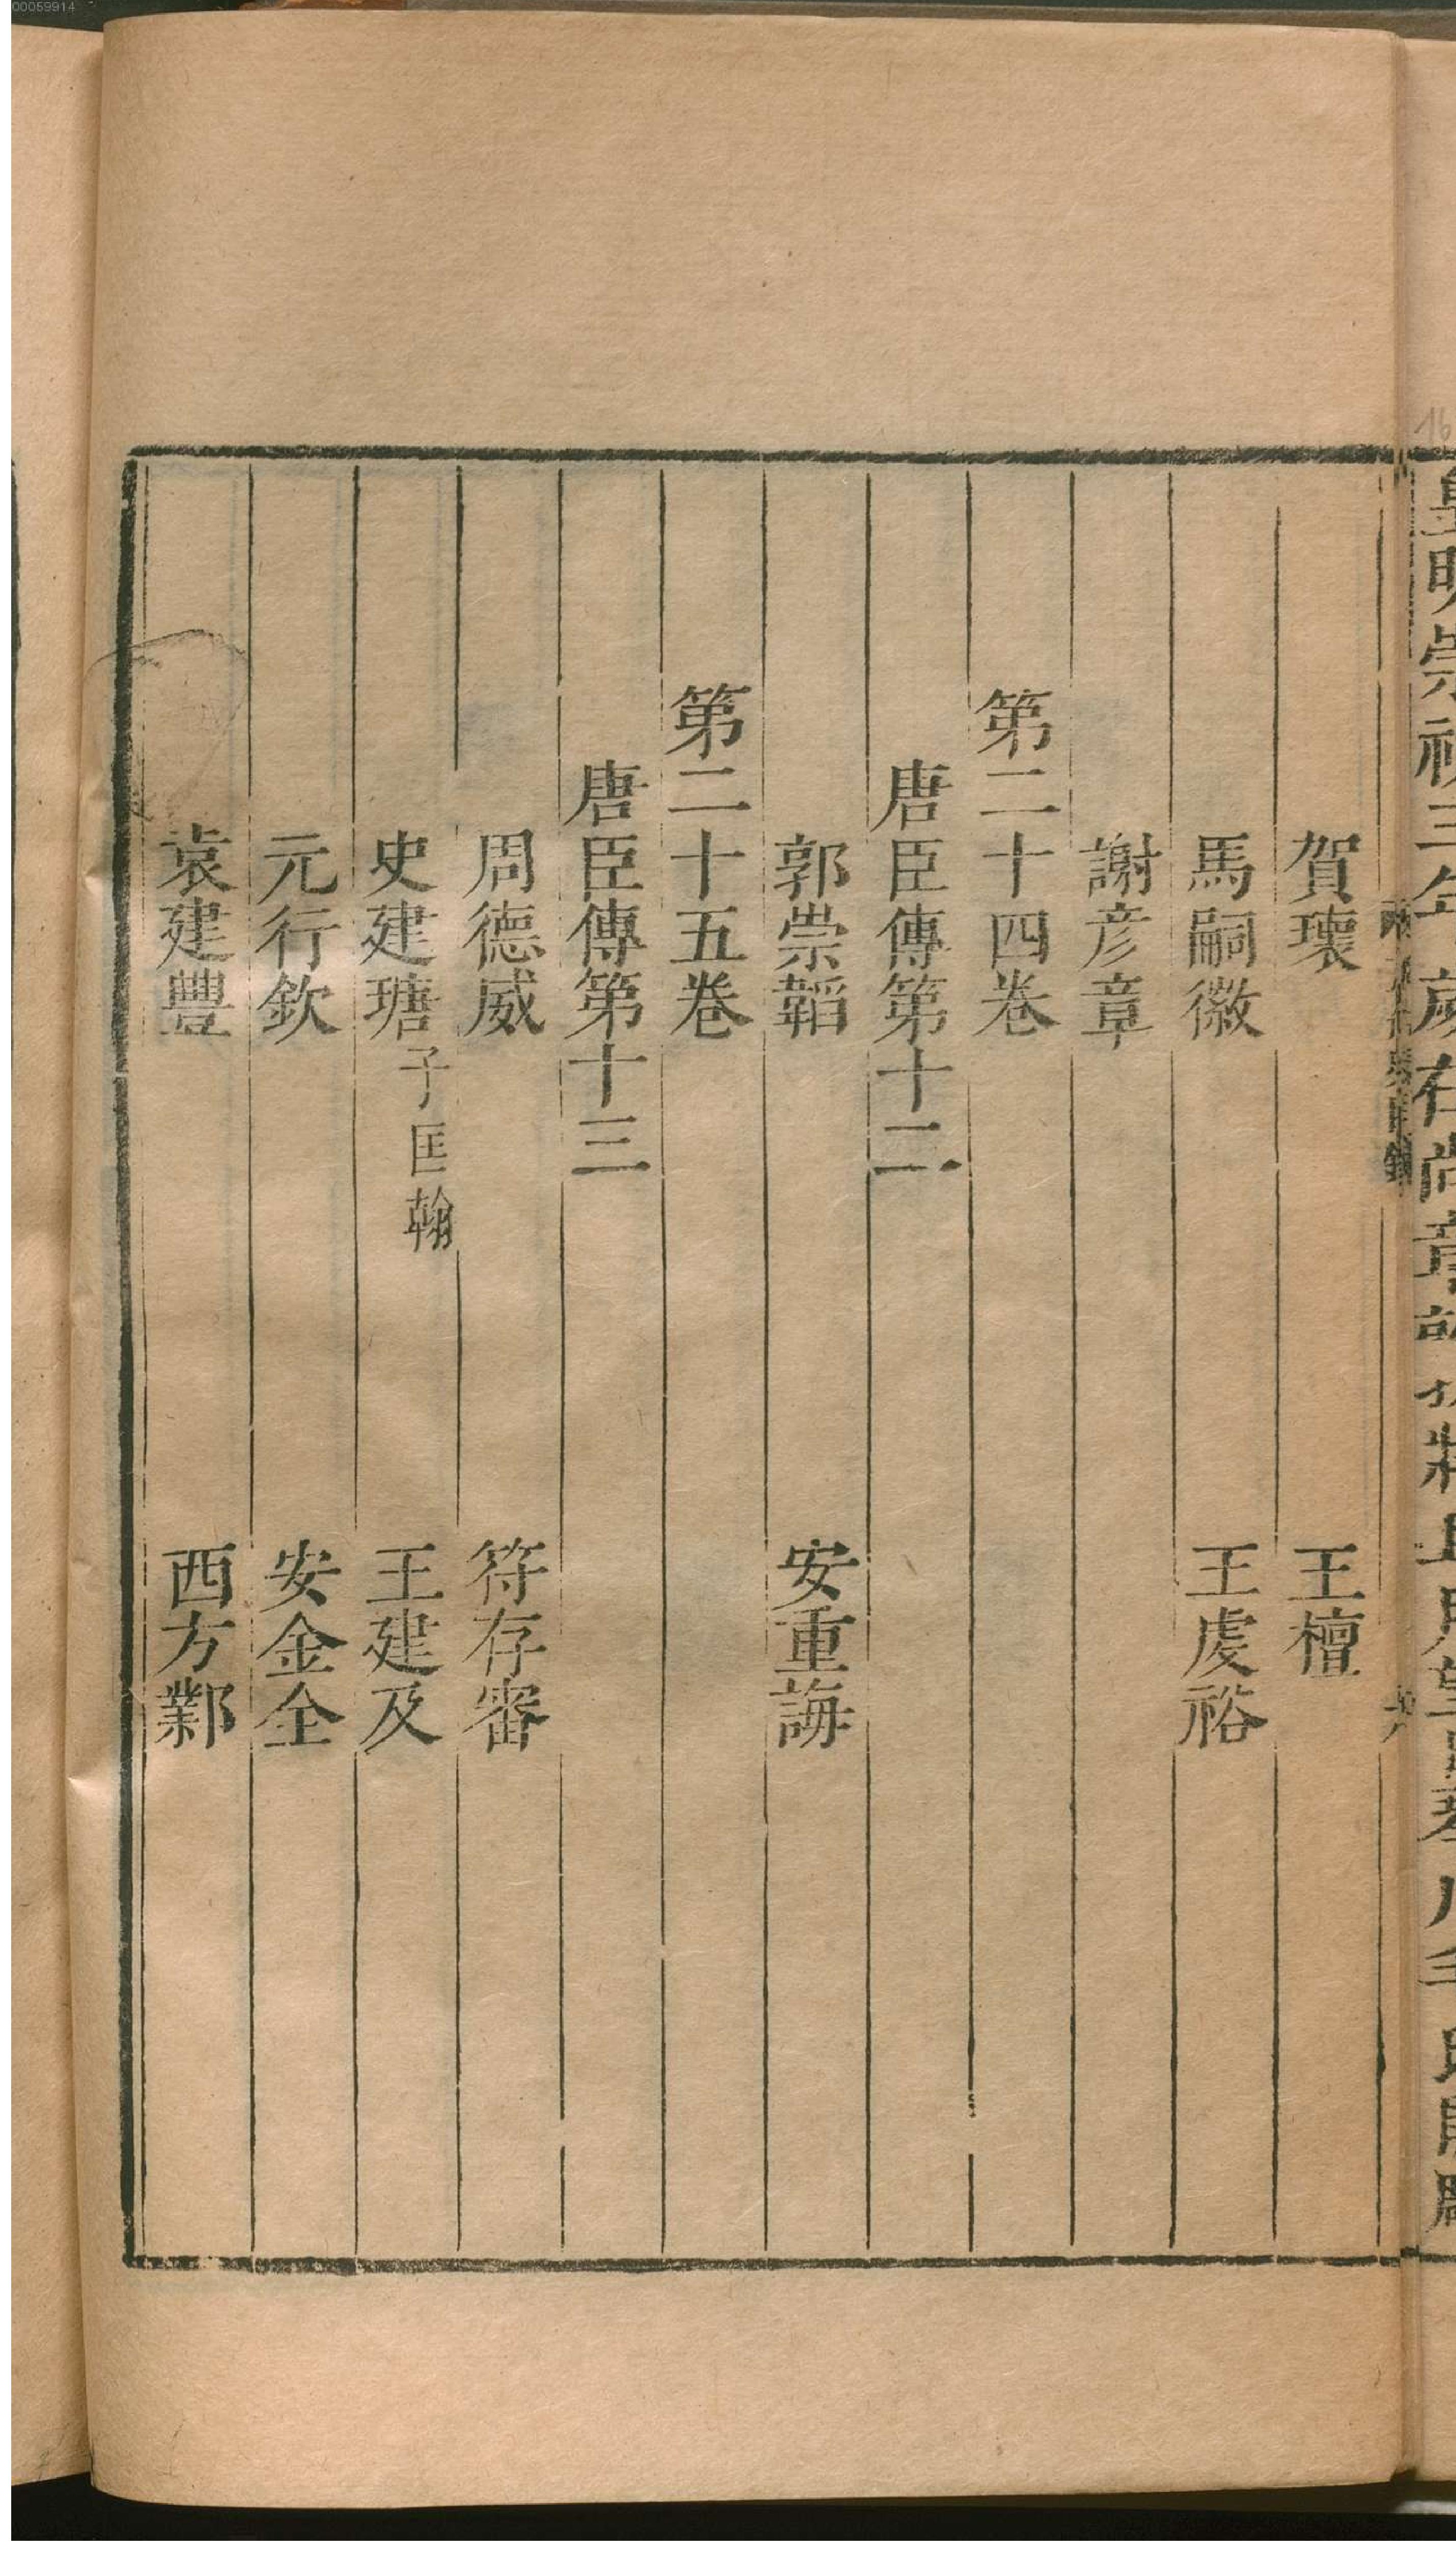 00059914
賀瓌　王檀
馬嗣徽　王處裕
謝彦章
第二十四卷
唐臣傳第十二
郭崇韜　安重誨
第二十五卷
唐臣傳第十三
周德威　符存審
史建瑭子匡翰　王建及
元行欽　安金全
袁建豐　西方鄴